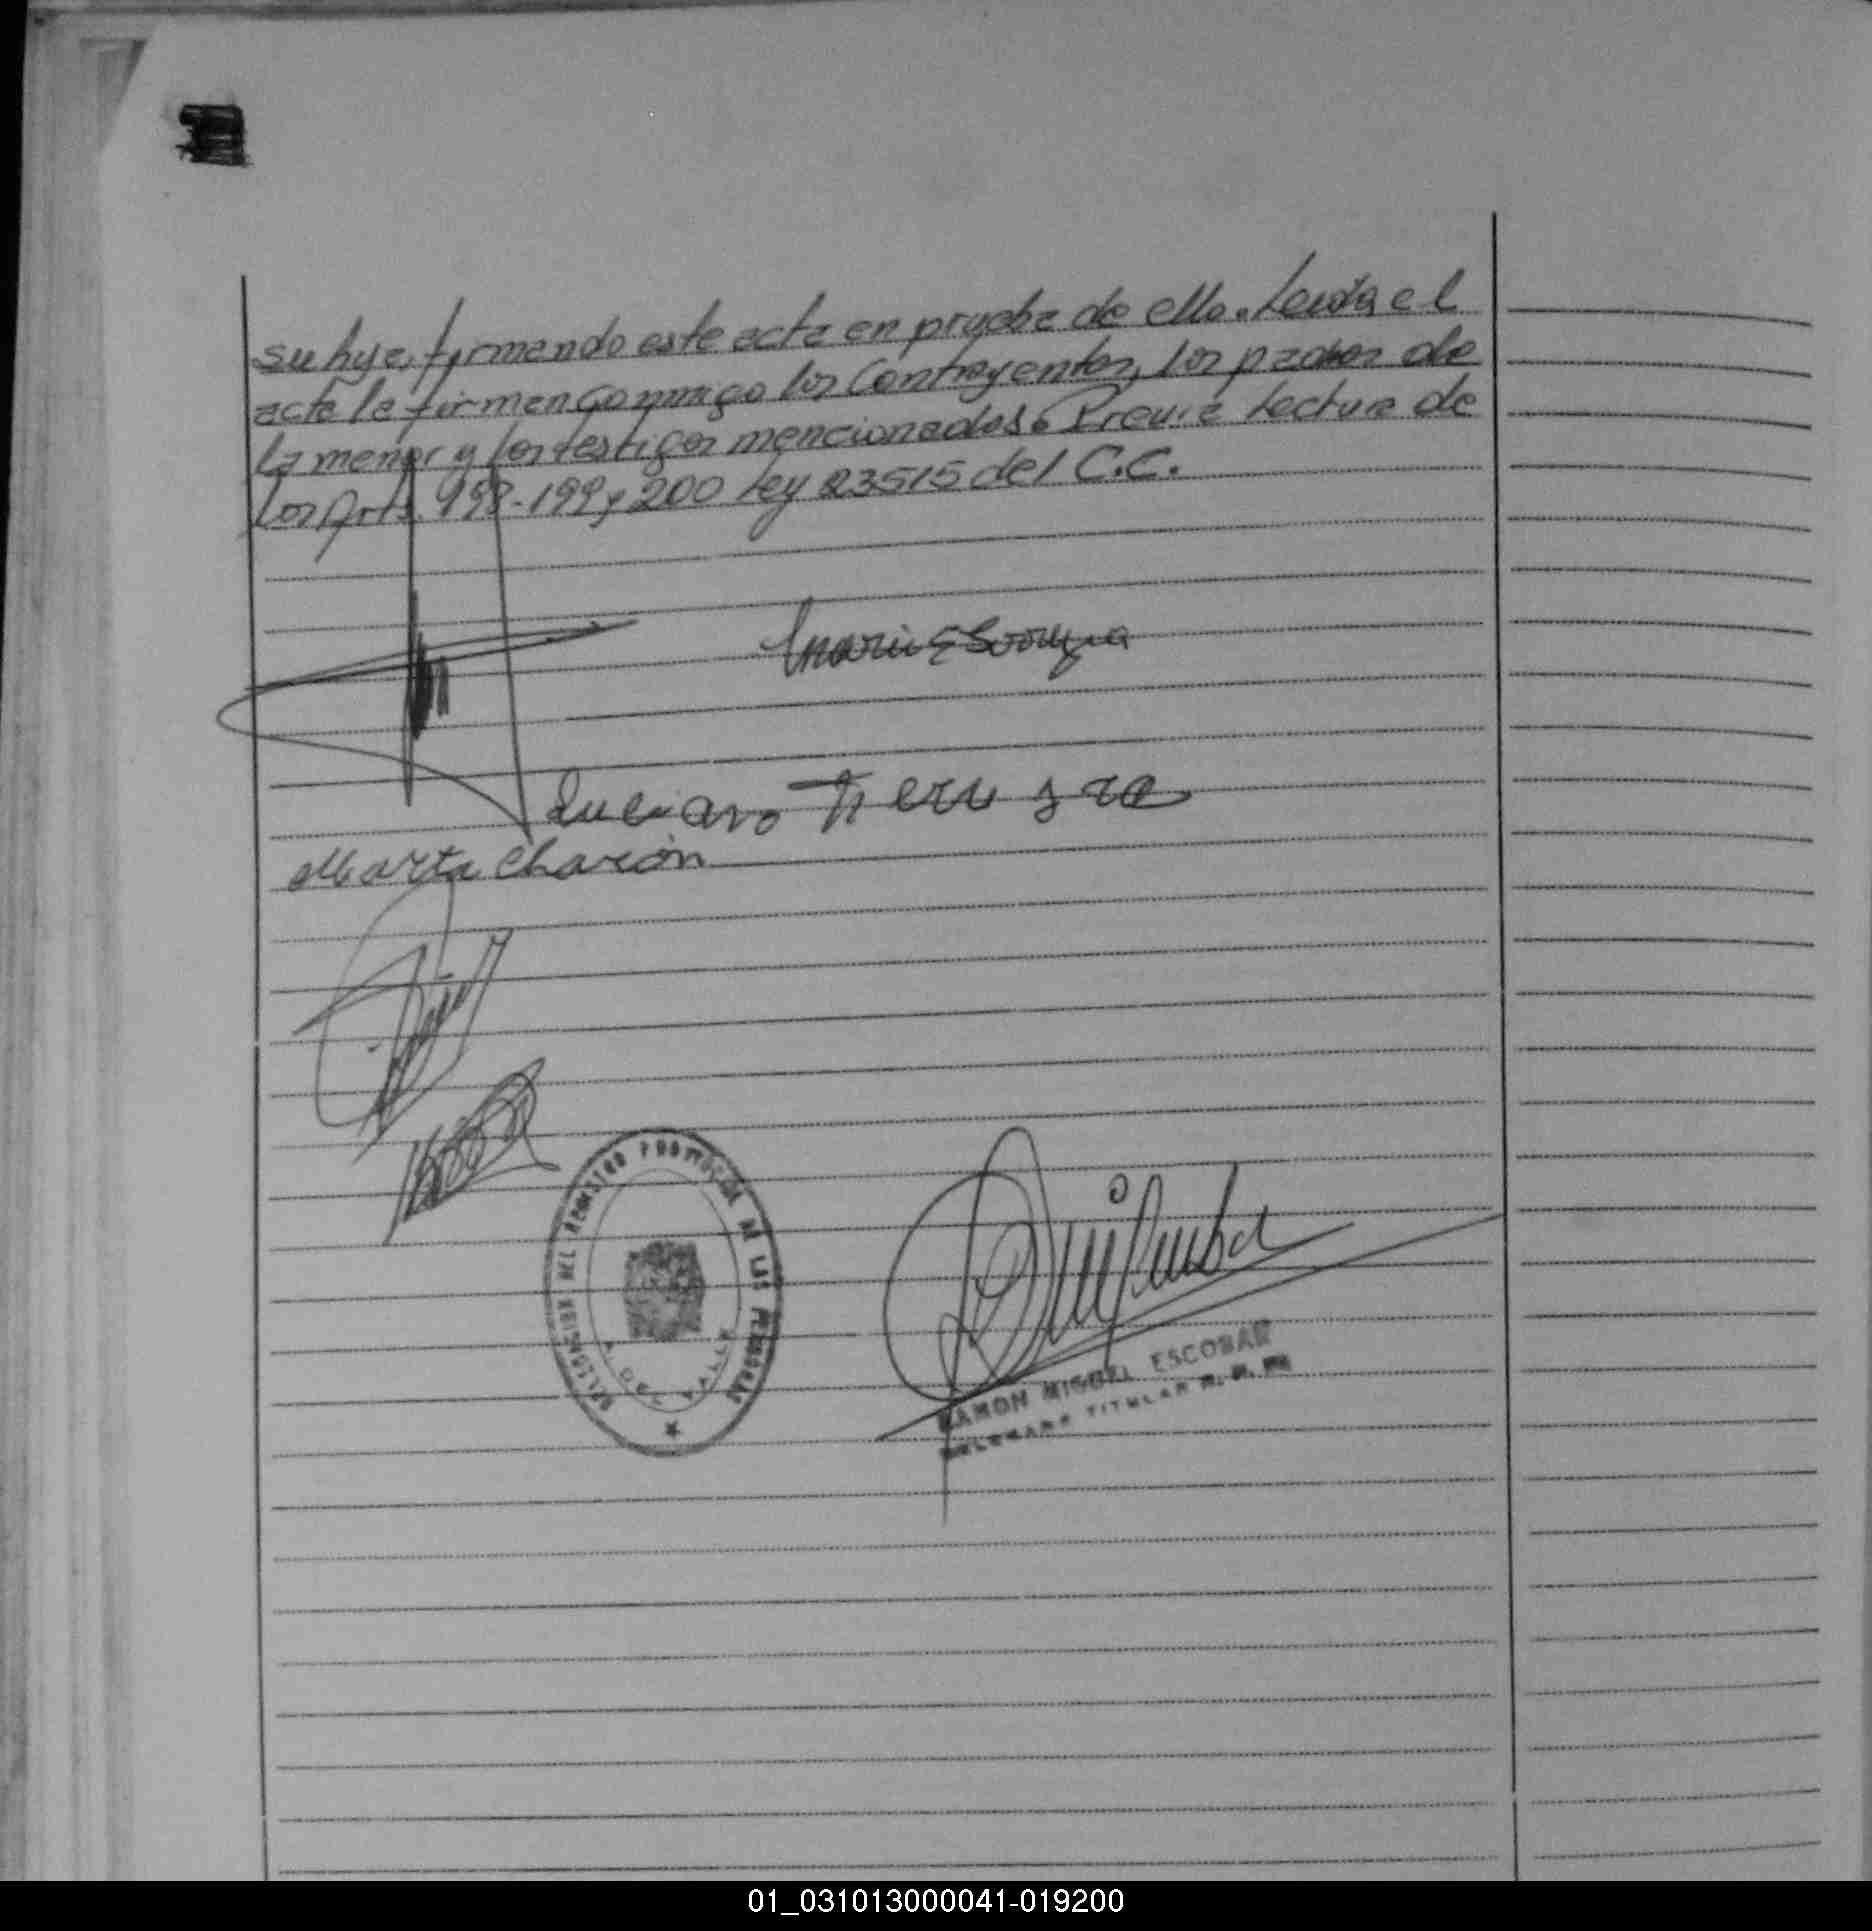 su hija, firmando este acta en prueba de ello. Leída el
acta la firman conmigo los Contrayentes, los padres de
la menor y los testigos mencionados. Previa Lectura de
los Arts. 198-199 y 200 Ley 23515 del C.C.
Luciano
Marta Chacón
DELEGACION DEL REGISTRO PROVINCIAL DE LAS PERSONAS
RAMON MIGUEL ESCOBAR
DELEGADO TITULAR R. P. P.
01_031013000041-019200